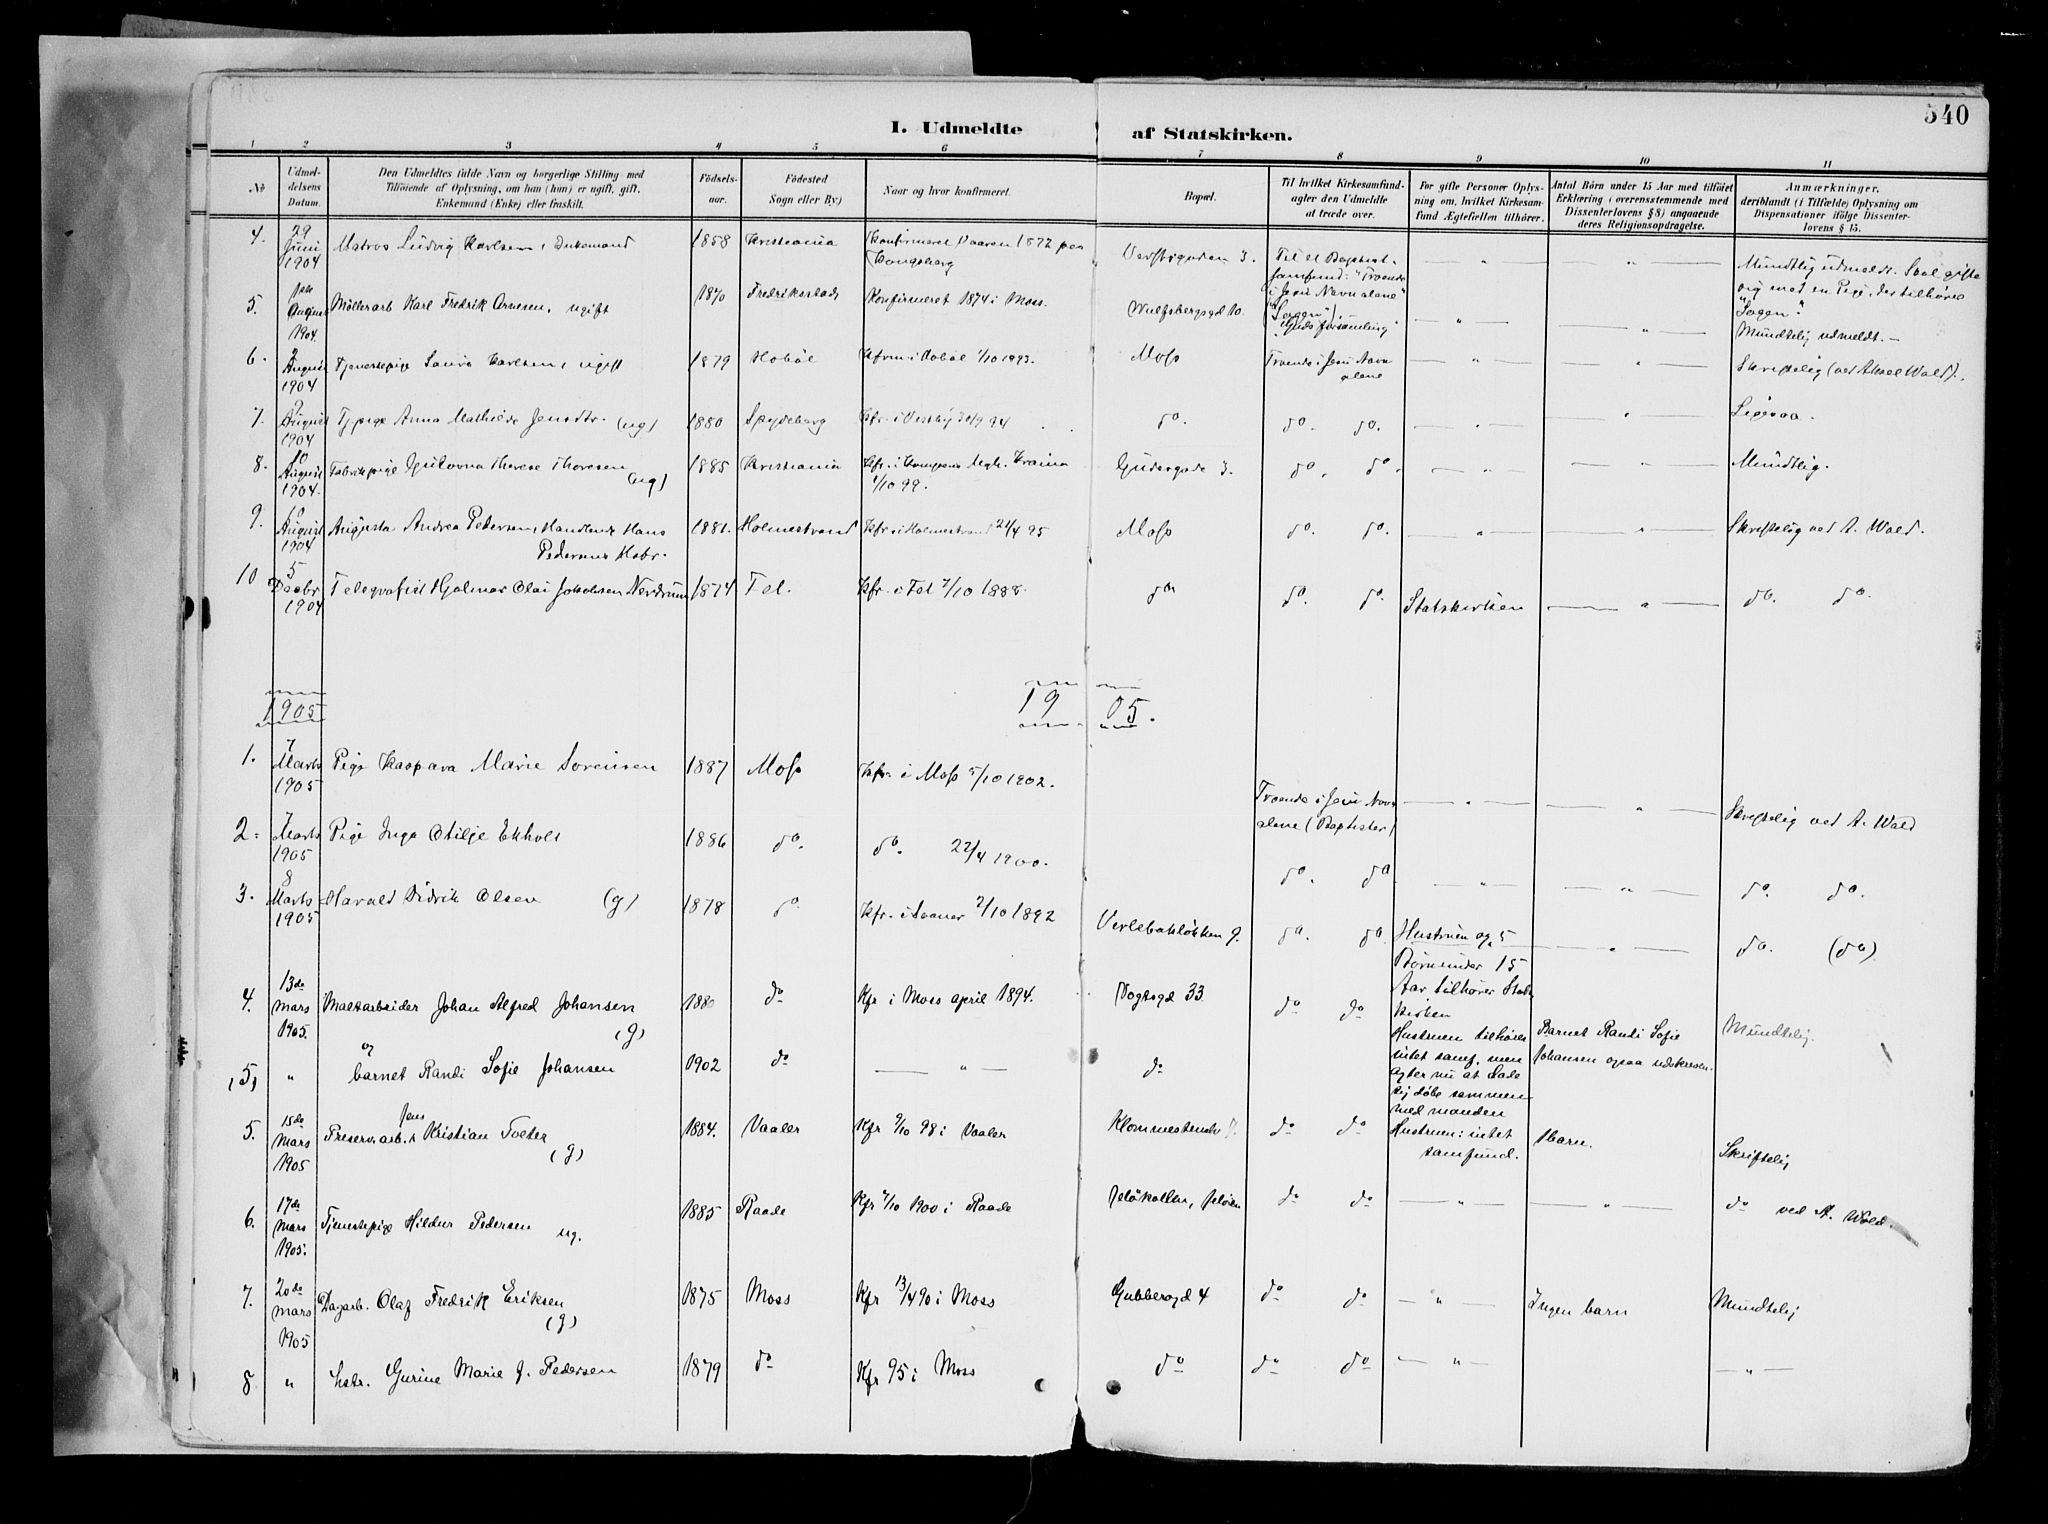 540
I. Udmeldte af Statskirken.
1 2 3 4 5 6 7 8 9 10 11
No
Udmel-
delsens
Datum.
Den Udmeldtes fulde Navn og borgerlige Stilling med
Tilføiende af Oplysning, om han (hun) er ugift, gift.
Enkemand (Enke) eller fraskilt.
Fødsels-
aar.
Fødested
Sogn eller By)
Naar og hvor konfirmeret.
Bopæl.
Til hvilket Kirkesamfund-
agter den Udmeldte
at træde over.
For gifte Personer Oplys-
ning om, hvilket Kirkesam-
fund Ægtefællen tilhører.
Antal Børn under 15 Aar med tilføiet
Erklæring (overensstemmende med
Dissenterlovens § 8) angaaende
deres Religionsopdragelse.
Anmærkninger.
deriblandt (i Tilfælde) Oplysning om
Dispensationer ifølge Dissenter-
lovens § 15.
4. 29 Juni 1904 Matros Ludvig Karlsen, Enkemand 1858 Kristiania Konfirmeret Vaaren 1872 paa Kongsberg 3. Til et Baptist-samfund: "Troende i Jesu Navn alene" — " — — " — Mundtlig udmeldt. Skal gifte sig med en Pige, der tilhører "Sagen".
5. August 1904. Møllerarb Karl Fredrik Arnesen, ugift 1870 Fredriksstad Konfirmeret 1874 i Moss. Wulfsbergsgd 10. — " — — " — Mundtelig udmeldt. —
6. August 1904 Tjenestepige Laura Karlsen, ugift 1879 Hobøl Kfrm i Hobøl 1/10 1893. Moss Troende i Jesu Navn alene — " — — " — Skriftelig (ved Aksel Wold).
7. 9 August 1904 Tjpige Anna Mathilde Jensdtr. (ug) 1880 Spydeberg Kfr. i Vestby 30/9 94 do. do. do. — " — — " — Ligesaa.
8. 10 August 1904. Fabrikpige Therese Thoresen (ug) 1885 Kristiania 1/10 99. Gudesgade 3. do. do. — " — — " — Mundtlig.
9. 10 August 1904 Augusta Andrea Pedersen, Handlende Hans Pedersens Hstr. 1881. Holmestrand Kfr. i Holmestrand 21/4 95 Moss do. do. — " — — " — Skriftelig ved A. Wold.
10 5 Decbr 1904 Telegrafist Hjalmar Olai Jakobsen Nordrum 1874 Fet. Kfr. i Fet 7/10 1888. do. do. do. Statskirken — " — do. do.
1905 1905.
1. 7 Marts 1905 Pige Kaspara Marie Sørensen 1887 Moss Kfr. i Moss 5/10 1902. Troende i Jesu Navn alene (Baptister) — " — — " — Skriftelig ved A. Wold
2. 7 Marts 1905 Pige Inga Otilje Ekholt 1886 do. do. 22/4 1900. do. do — " — — " — do. do.
3. 8 Marts 1905 Harald Didrik Olsen (g) 1878 do Kfr. i Svaner 2/10 1892 Verlebakløkken 9. do. do. Hustruen og 5 Børn under 15 Aar tilhører Statskirken — " — do. (do)
4. 13de mars 1905. Maltarbeider Johan Alfred Johansen (g) 1880 do Kfr i Moss april 1894. Vogtsgd 33 do do Hustruen tilhører intet samf. men agter nu at lade sig døbe sammen med manden Barnet Randi Sofie Johansen ogsaa udskreven. Mundtelig.
(5) " og barnet Randi Sofie Johansen 1902 do — " — do
5. 15de Mars 1905 Preserv.arb. Jens Kristian Tveter (g) 1884. Vaaler Kfr 9/10 98 i Vaaler do do Hustruen: intet samfund. 1 barn. Skriftelig
6. 17de mars 1905. Tjenestepige Hildur Pedersen ug. 1885 Raade Kfr 7/10 1900 i Raade Jeløkollen, Jeløen do do — " — — " — do ved A. Wold.
7. 20de mars 1905 Dagarb. Olaf Fredrik Eriksen (g) 1875 Moss Kfr 13/4 90 i Moss Gubbesgd 4 do do — " — Ingen barn Mundtelig
8 " hstr. Gurine Marie J. Pedersen 1879 do Kfr 95 i Moss do do do — " — — " —